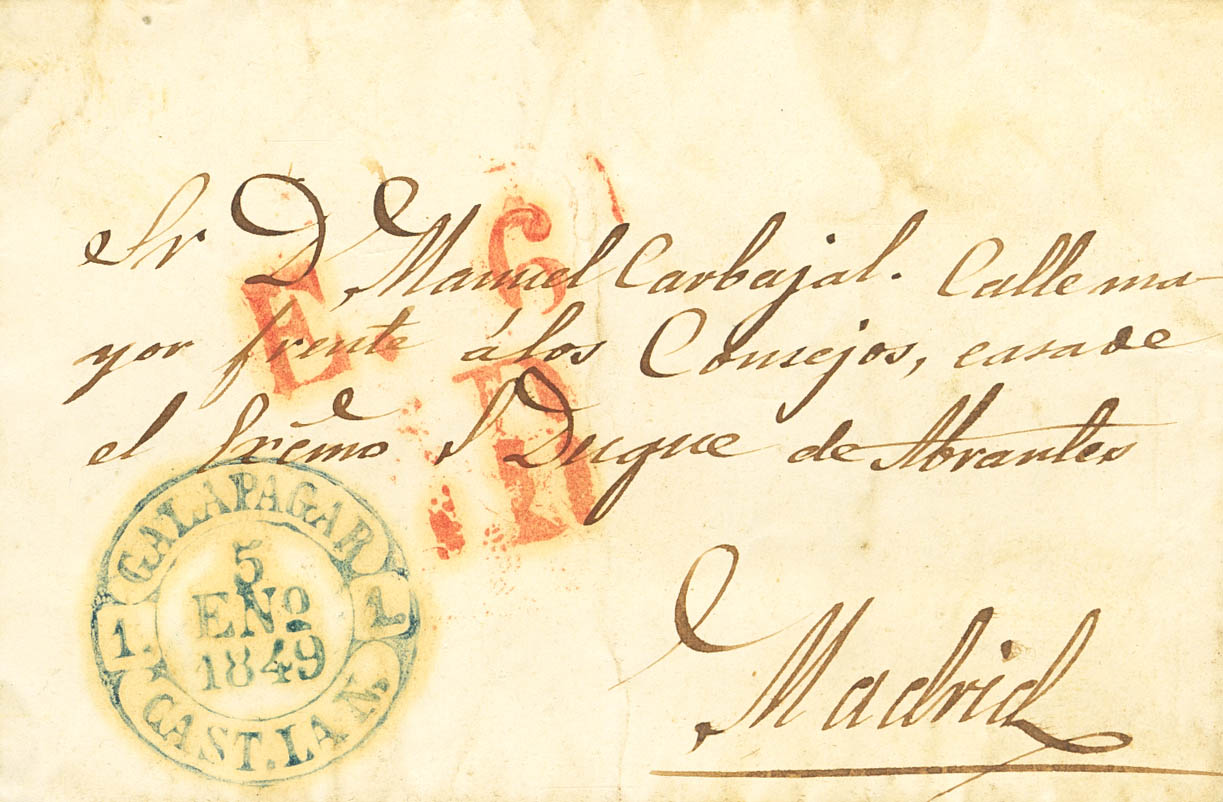 Sr D Manuel Carbajal. Calle ma-
yor frente á los Consejos, casa de
el Excmo S Duque de Abrantes
Madrid
E.
6
R
GALAPAGAR
1. 1.
5
ENº
1849
CAST. LA N.